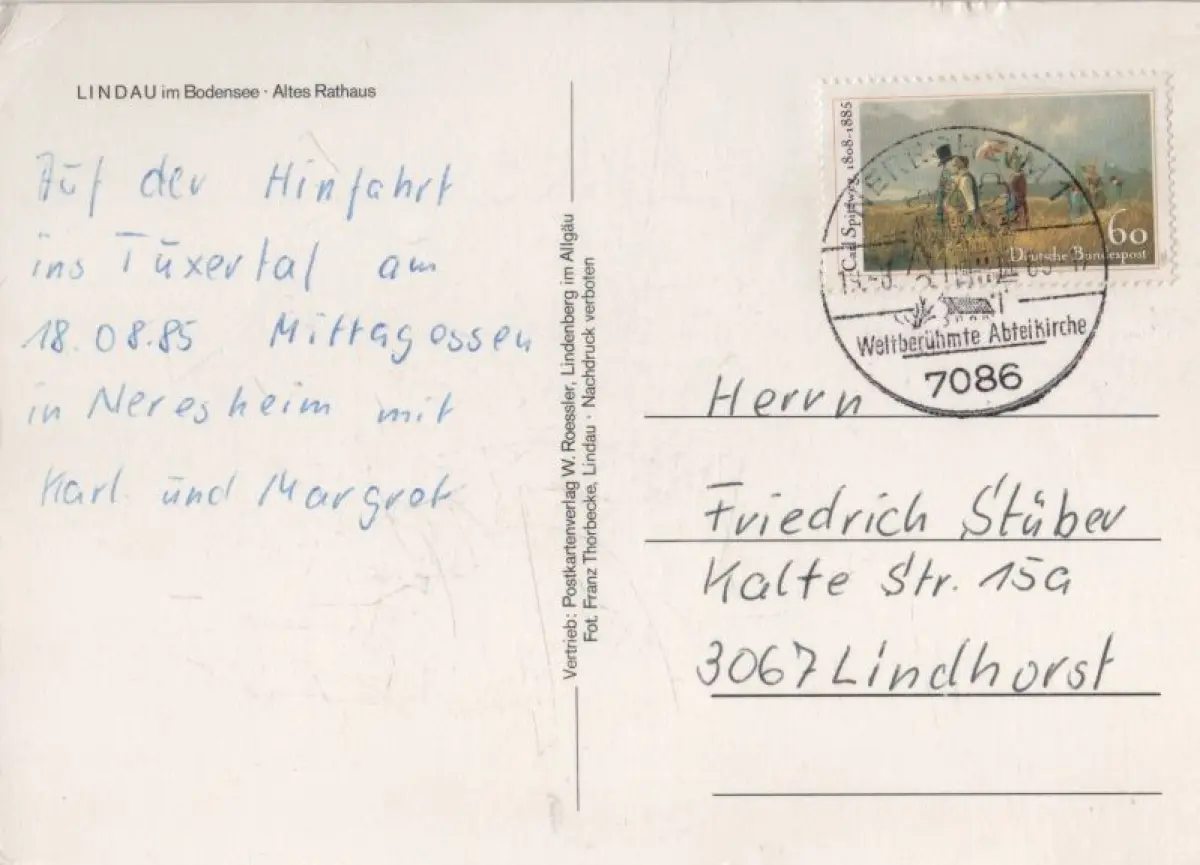 LINDAU im Bodensee · Altes Rathaus
Auf der Hinfahrt
ins Tuxertal am
18.08.85 Mittagessen
in Neresheim mit
Karl und Margret
Vertrieb: Postkartenverlag W. Roessler, Lindenberg im Allgäu
Fot. Franz Thorbecke, Lindau · Nachdruck verboten
Carl Spitzweg 1808-1885
60
Deutsche Bundespost
Weltberühmte Abteikirche
7086
Herrn
Friedrich Stüber
Kalte Str. 15a
3067 Lindhorst